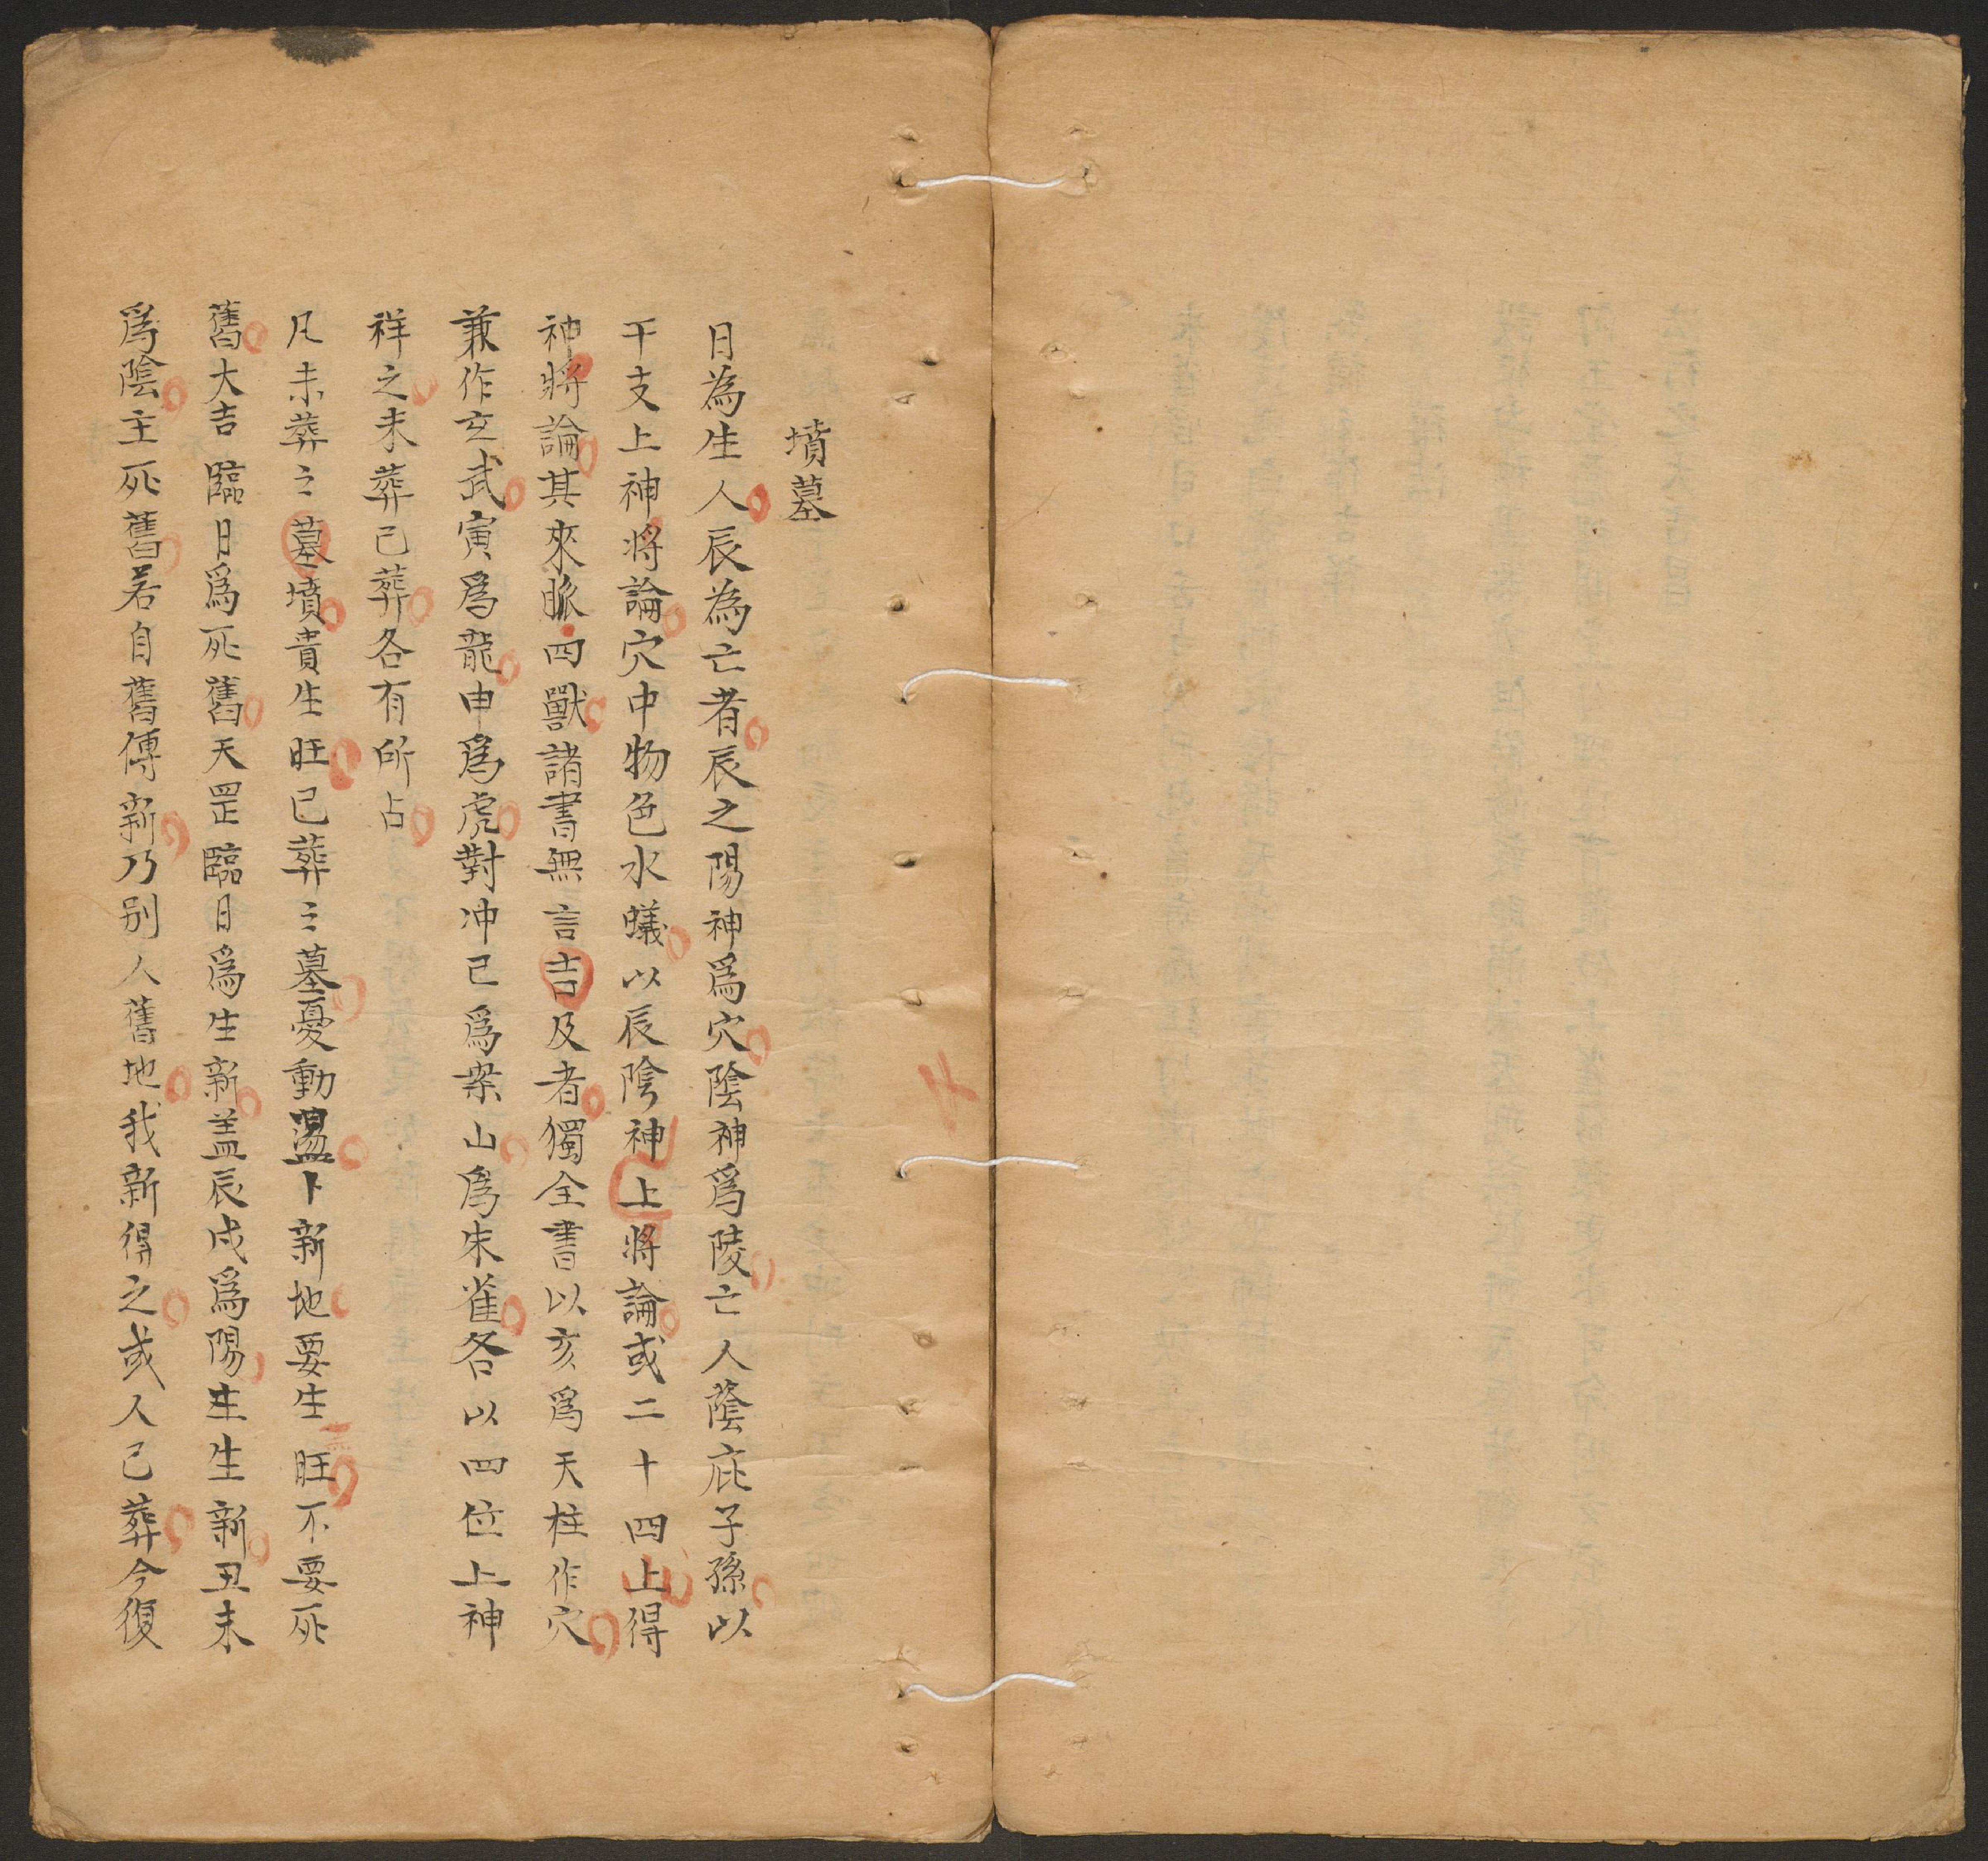 墳墓
日為生人辰為亡者辰之陽神爲穴陰神爲陵亡人蔭庇子孫以
干支上神將論穴中物色水蟻以辰陰神上將論或二十四上得
神將論其來脈四獸諸書無言吉及者獨全書以亥爲天柱作穴
兼作玄武寅爲龍申爲虎對冲已爲案山爲朱雀各以四位上神
祥之未葬已葬各有所占
凡未葬之墓墳責生旺已葬之墓憂動盪卜新地要生旺不要死
舊大吉臨日爲死舊天罡臨日爲生新盖辰戌爲陽主生新丑未
爲陰主死舊若自舊傳新乃别人舊地我新得之或人已葬今復